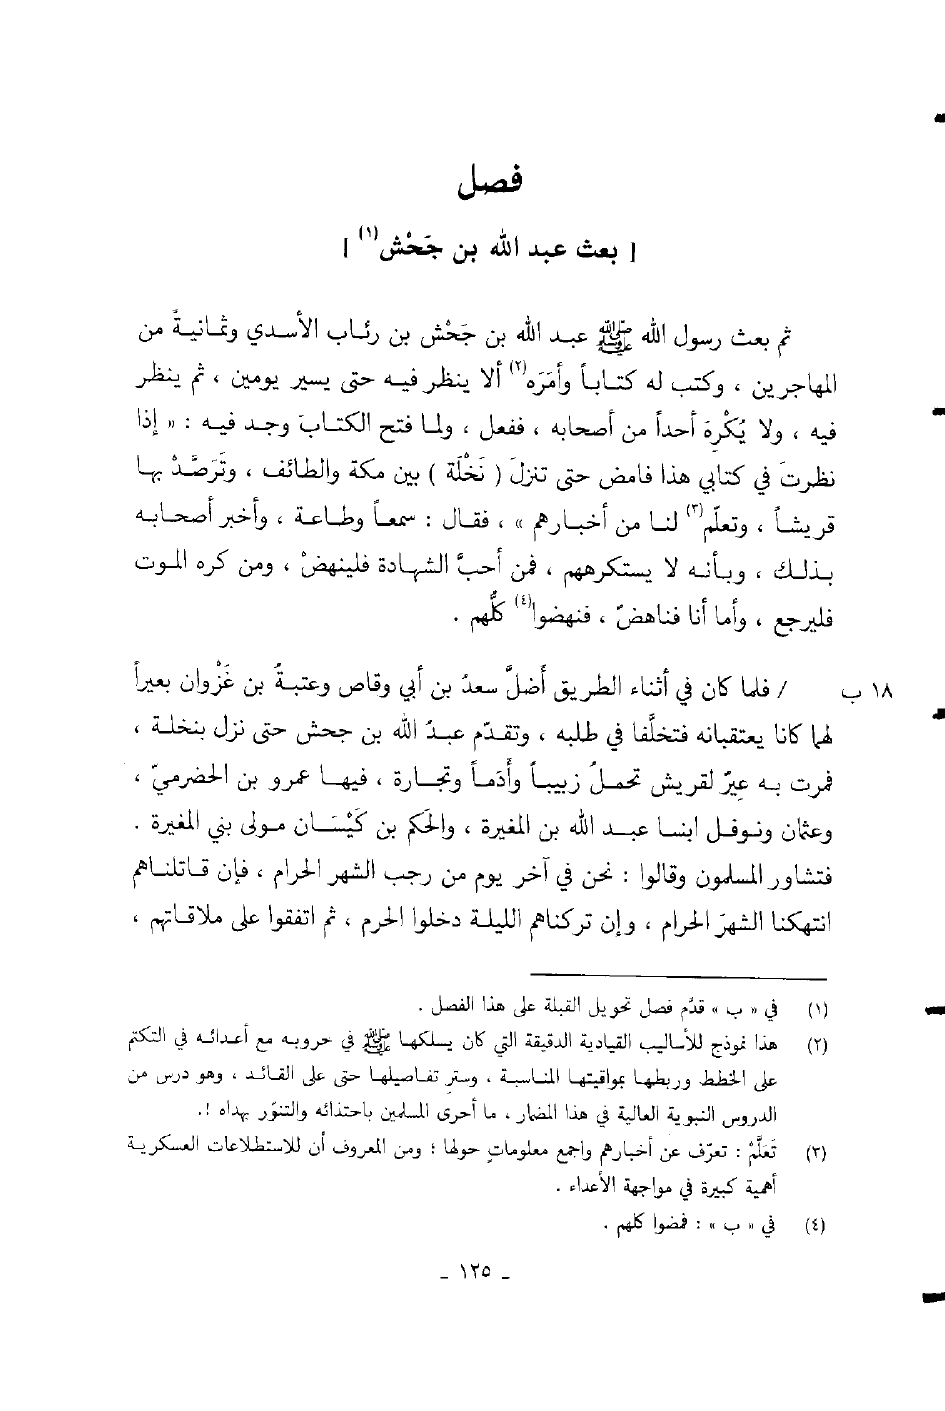 فصل
[ بعث عبد الله بن جَحْش(١) ]
ثم بعث رسول الله ﷺ عبد الله بن جَحْش بن رئاب الأسدي وثمانيةً من
المهاجرين ، وكتب له كتاباً وأمَرَه(٢) ألا ينظر فيه حتى يسير يومين ، ثم ينظر
فيه ، ولا يُكْرِهَ أحداً من أصحابه ، ففعل ، ولما فتح الكتابَ وجد فيه : « إذا
نظرتَ في كتابي هذا فامض حتى تنزلَ ( نَخْلَة ) بين مكة والطائف ، وتَرَصَّدْ بها
قريشاً ، وتعلّم(٣) لنا من أخبارهم » ، فقال : سمعاً وطاعة ، وأخبر أصحابه
بذلك ، وبأنه لا يستكرههم ، فمن أحبَّ الشهادة فلينهضْ ، ومن كره الموت
فليرجع ، وأما أنا فناهضٌ ، فنهضوا(٤) كلُّهم .
١٨ ب / فلما كان في أثناء الطريق أضلَّ سعدُ بن أبي وقاص وعتبةُ بن غَزْوان بعيراً
لهما كانا يعتقبانه فتخلَّفا في طلبه ، وتقدّم عبدُ الله بن جحش حتى نزل بنخلة ،
فمرت به عِيرٌ لقريش تحملُ زبيباً وأَدَماً وتجارة ، فيها عمرو بن الحضرميّ ،
وعثمان ونوفل ابنا عبد الله بن المغيرة ، والحَكم بن كَيْسَان مولى بني المغيرة .
فتشاور المسلمون وقالوا : نحن في آخر يوم من رجب الشهر الحرام ، فإن قاتلناهم
انتهكنا الشهرَ الحرام ، وإن تركناهم الليلة دخلوا الحرم ، ثم اتفقوا على ملاقاتهم ،
(١) في « ب » قدّم فصل تحويل القبلة على هذا الفصل .
(٢) هذا نموذج للأساليب القيادية الدقيقة التي كان يسلكها ﷺ في حروبه مع أعدائه في التكتم
على الخطط وربطها بمواقيتها المناسبة ، وستر تفاصيلها حتى على القائد ، وهو درس من
الدروس النبوية العالية في هذا المضمار ، ما أحرى المسلمين باحتذائه والتنوّر بهداه !.
(٣) تَعَلَّمْ : تعرّف عن أخبارهم واجمع معلوماتٍ حولها ؛ ومن المعروف أن للاستطلاعات العسكرية
أهمية كبيرة في مواجهة الأعداء .
(٤) في « ب » : فمضوا كلهم .
- ١٢٥ -